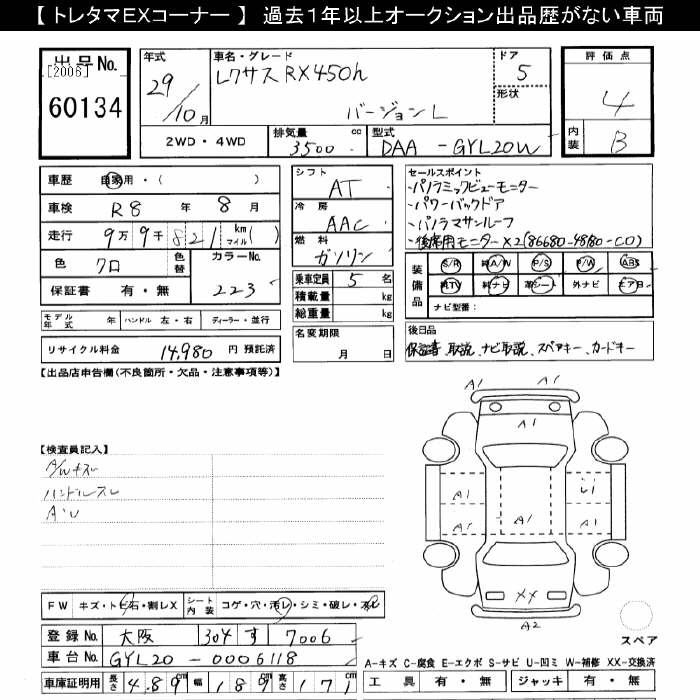 【 トレタマEXコーナー 】 過去1年以上オークション出品歴がない車両
出品No. [2006] 60134
年式 29/10月
車名・グレード レクサス RX450h バージョンL
ドア 5
形状
評価点 4
内装 B
2WD・4WD
排気量 3500 cc
型式 DAA-GYL20W
車歴 自家用・( )
車検 R8 年 8 月
走行 9万 9千 821 km マイル( )
色 クロ 色替 カラーNo. 223
保証書 有・無
シフト AT
冷房 AAC
燃料 ガソリン
乗車定員 5 名
積載量 kg
総重量 kg
セールスポイント
・パノラミックビューモニター
・パワーバックドア
・パノラマサンルーフ
・後席用モニターX2(86680-48180-C0)
装備品 S/R 純A/W P/S P/W ABS
純TV 純ナビ 革シート 外ナビ エアB
ナビ型番:
モデル年式 年 ハンドル 左・右 ディーラー・並行
リサイクル料金 14,980 円 預託済
名変期限 月 日
後日品
保証書、取説、ナビ取説、スペアキー、カードキー
【出品店申告欄(不良箇所・欠品・注意事項等)】
【検査員記入】
A/Wキズ
ハンドルスレ
A・U
A1 A1
A1
A1 A1 A1 A1
XX
A2
スペア
FW キズ・トビ石・割レX
シート内装 コゲ・穴・汚レ・シミ・破レ・スレ
登録No. 大阪 304 す 7006
車台No. GYL20-0006118
車庫証明用 長さ 4.89 cm 幅 189 cm 高さ 171 cm
A-キズ C-腐食 E-エクボ S-サビ U-凹ミ W-補修 XX-交換済
工具 有・無 ジャッキ 有・無